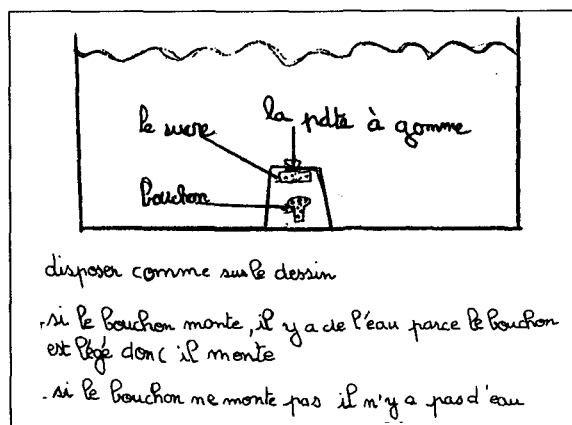 le sucre
la pâte à gomme
bouchon
disposer comme sur le dessin
. si le bouchon monte, il y a de l'eau parce le bouchon
est légé donc il monte
. si le bouchon ne monte pas il n'y a pas d'eau